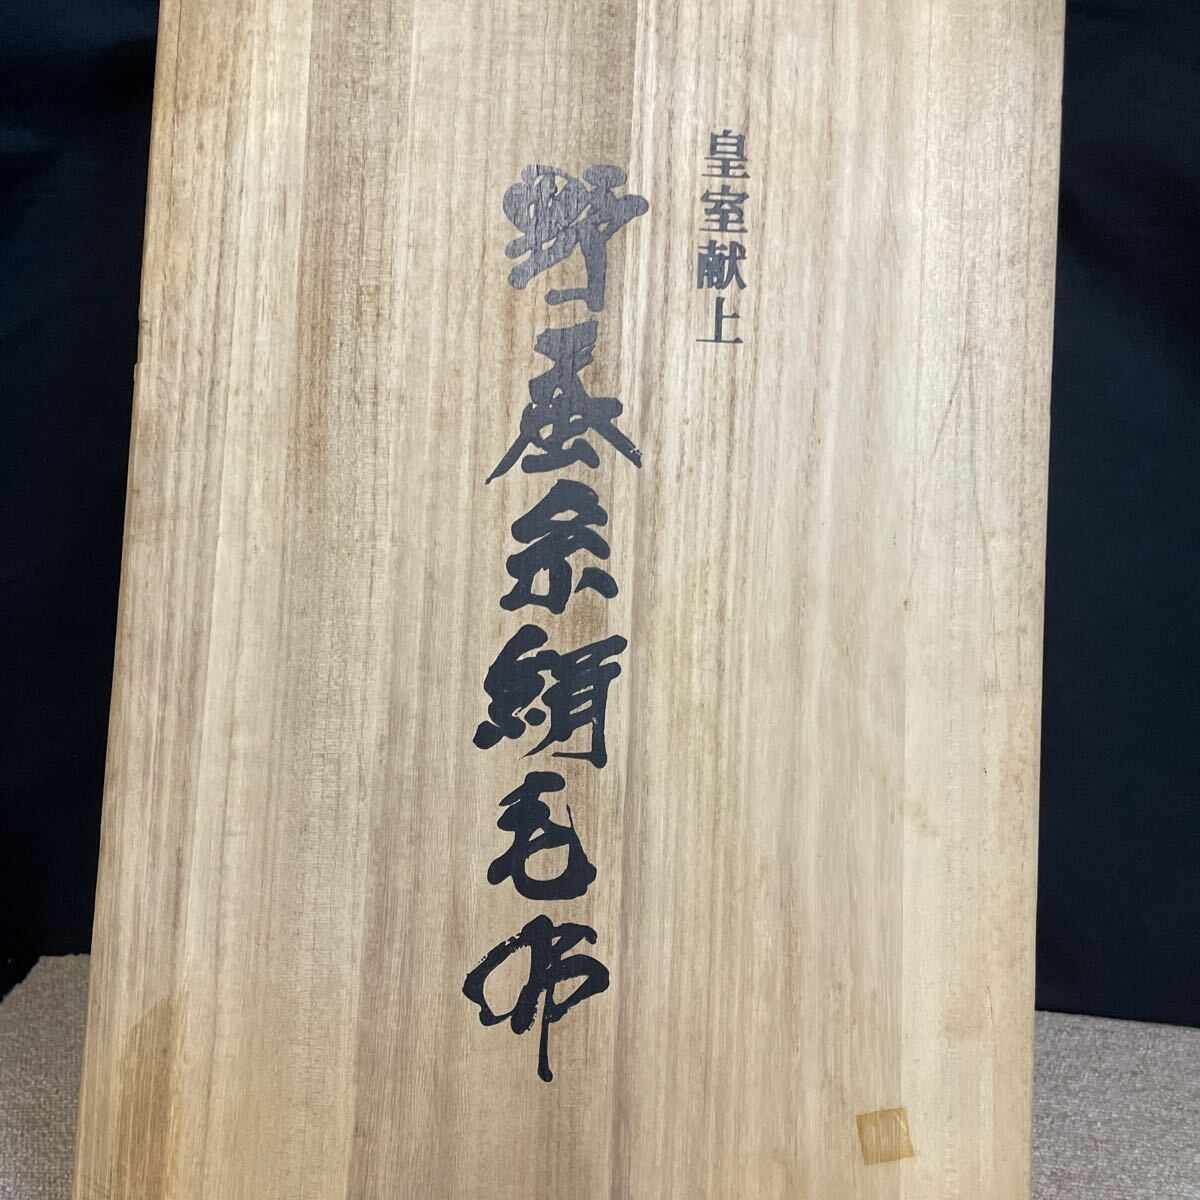 皇室献上
野蚕糸絹毛布